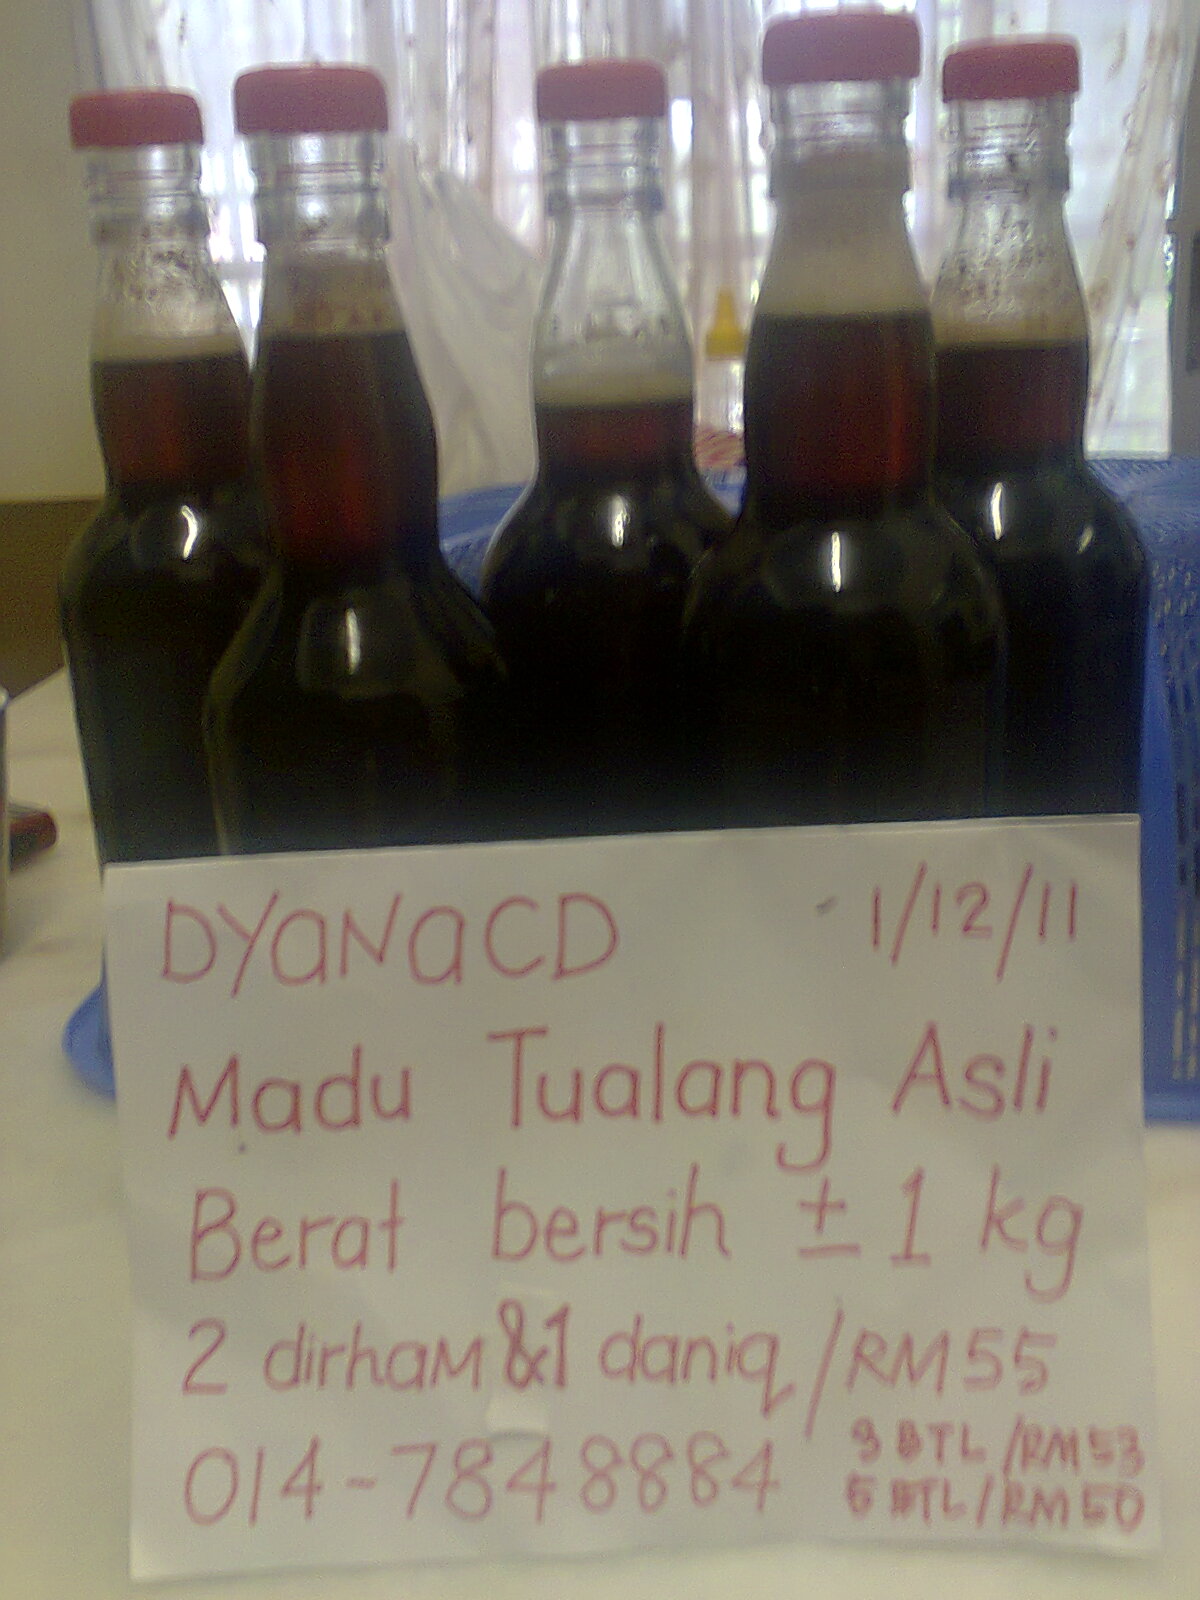 DYaNaCD 1/12/11
Madu Tualang Asli
Berat bersih ± 1 kg
2 dirham & 1 daniq / RM 55
014-7848884
3 BTL / RM 53
5 BTL / RM 50